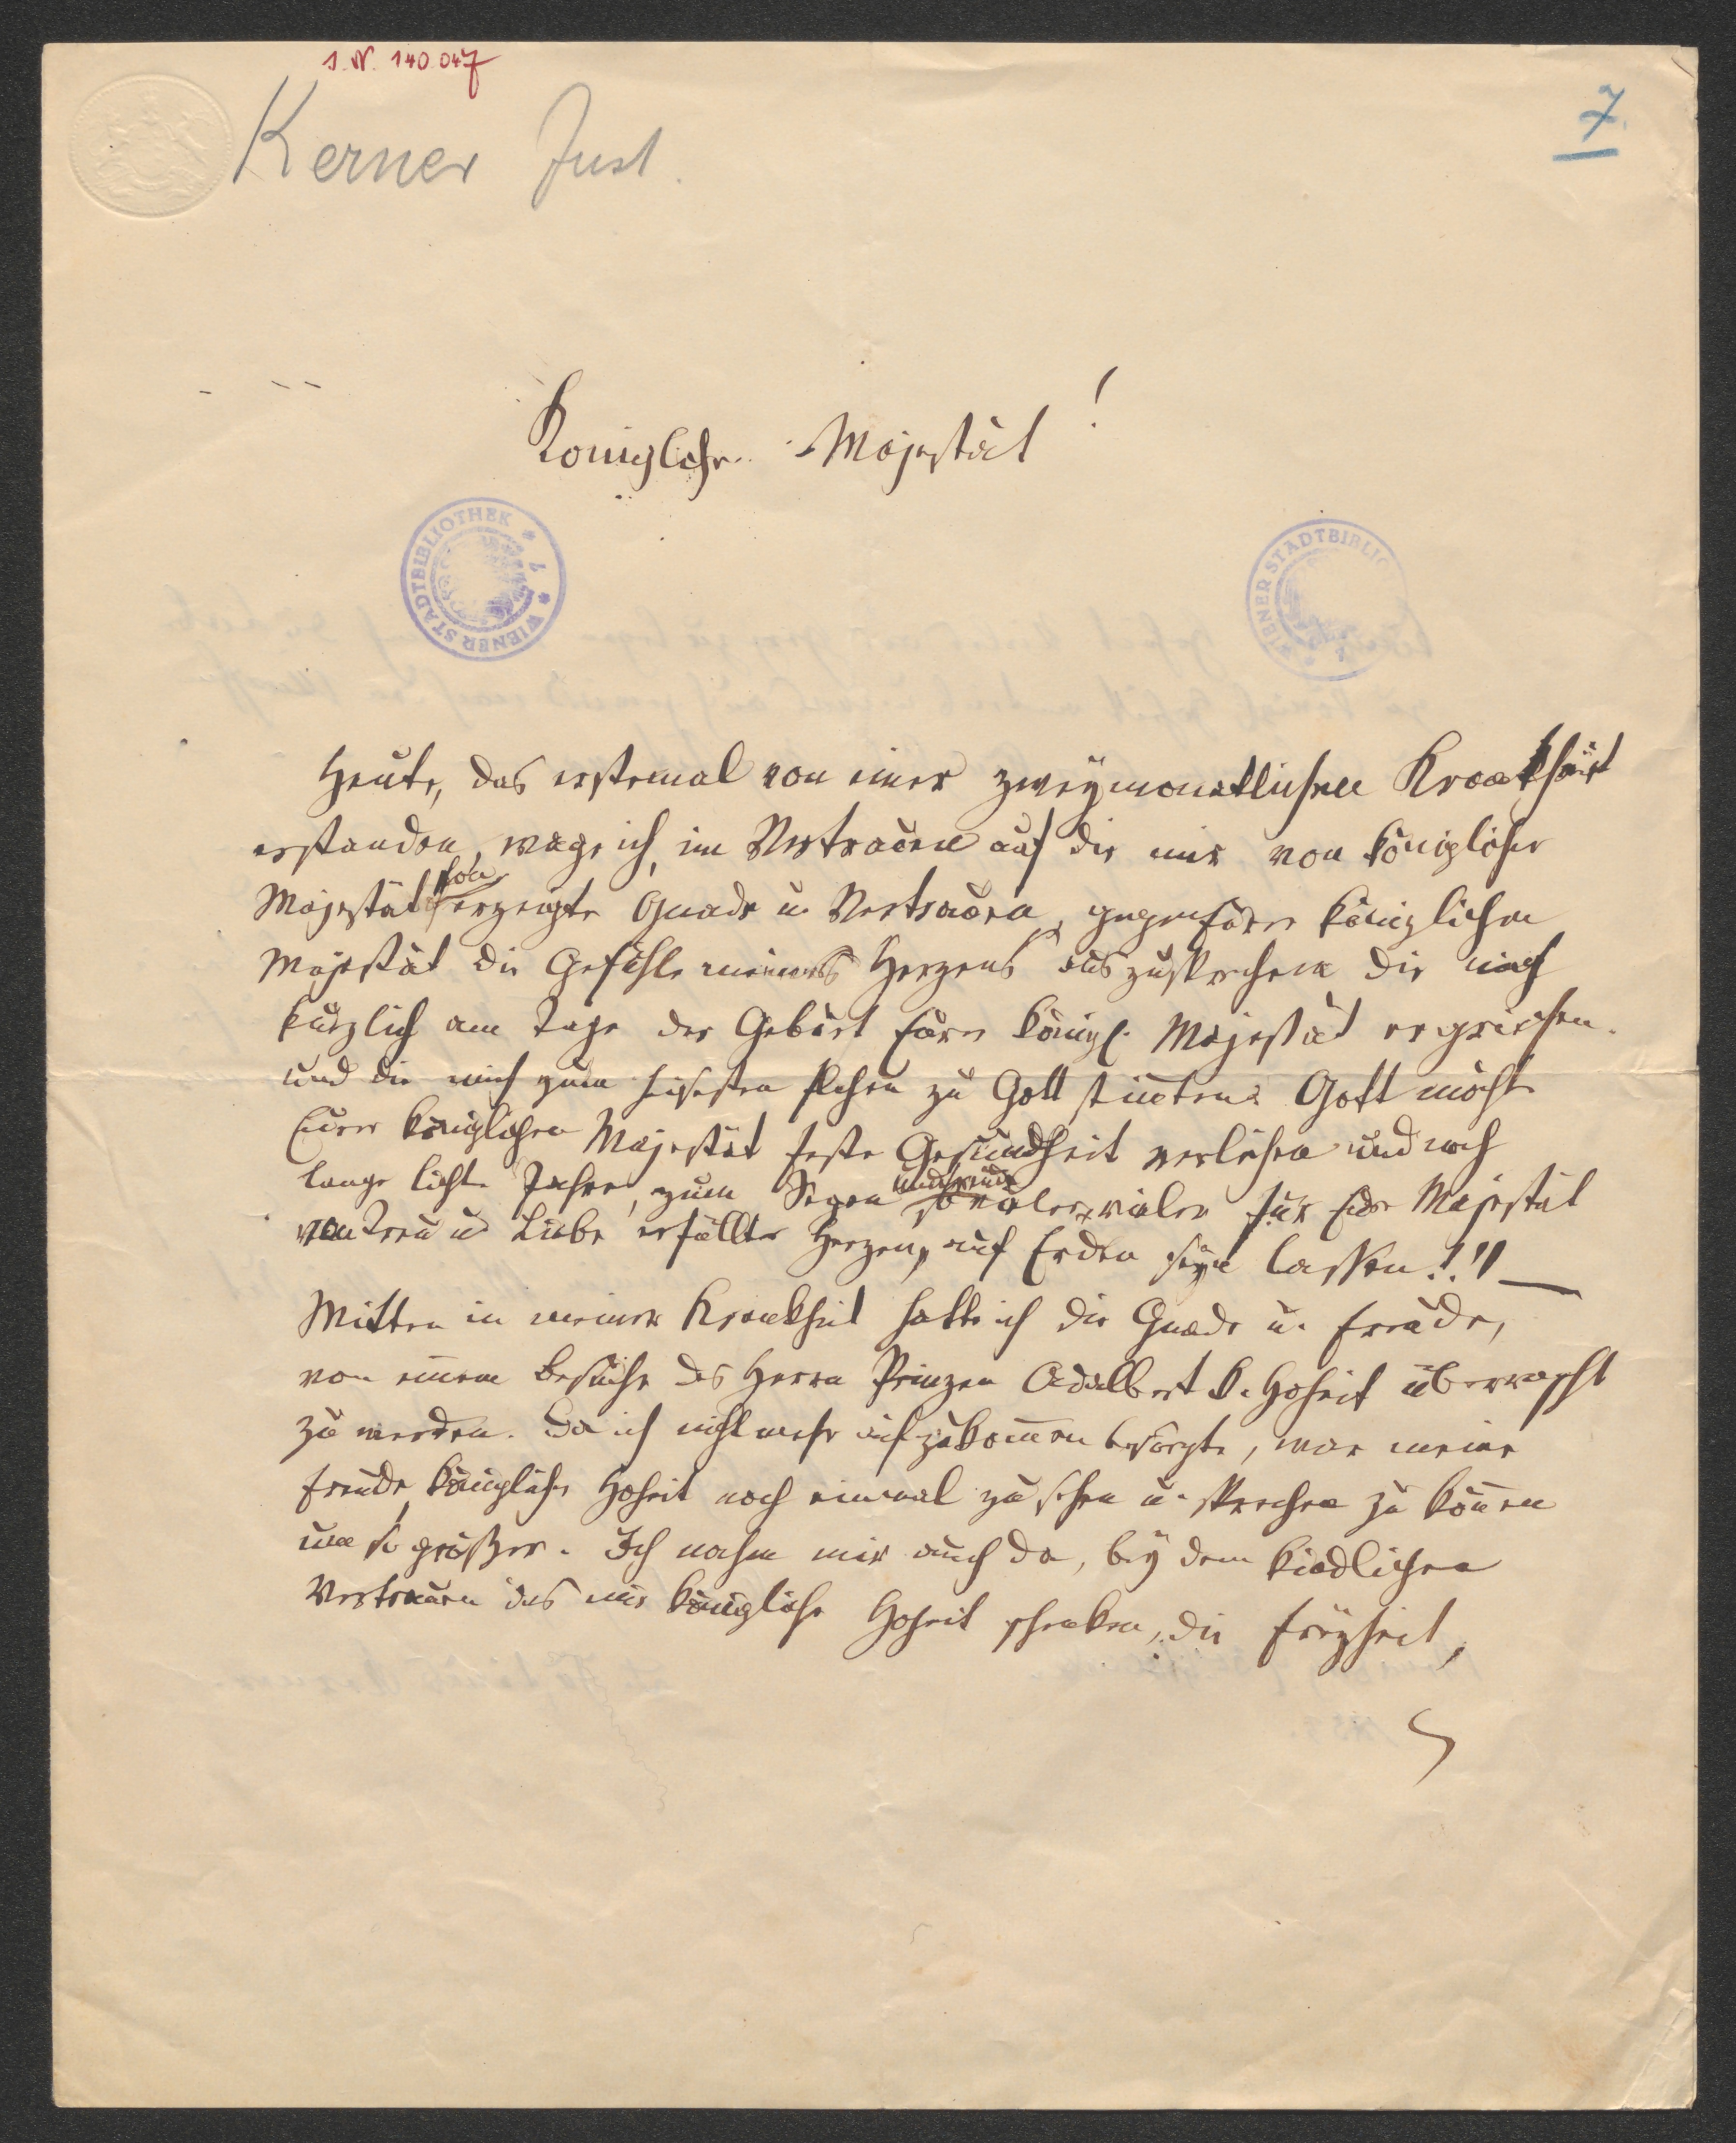 I. N. 140.047
Kerner Just.
7.
Königliche Majestät!
WIENER STADTBIBLIOTHEK
WIENER STADTBIBLIO
Heute, das erstemal von einer zweymonatlichen Krankheit
erstanden, wage ich, im Vertrauen auf die mir von königlicher
Majestät erzeigte Gnade u. Vertrauen, gegen Eure königlichen
Majestät die Gefühle meines Herzens auszusprechen die mich
kürzlich am Tage der Geburt Eurer königl. Majestät ergriffen
und die mich zum heißesten Flehen zu Gott stimmten: Gott möchte
Eurer königlichen Majestät feste Gesundheit verleihen und noch
lange lichte Jahre, zum Segen und Freude so vieler, vieler für Eure Majestät
von Treu u. Liebe erfüllter Herzen, auf Erden seyn lassen!!" —
Mitten in meiner Krankheit hatte ich die Gnade u. Freude,
von einem Besuche des Herrn Prinzen Adalbert k. Hoheit überrascht
zu werden. Da ich nicht mehr aufzukommen besorgte, war meine
Freude, königliche Hoheit noch einmal zu sehen u. sprechen zu können
um so größer. Ich nahm mir auch da, bey dem kindlichen
Vertrauen das mir königliche Hoheit schenken, die Freyheit,